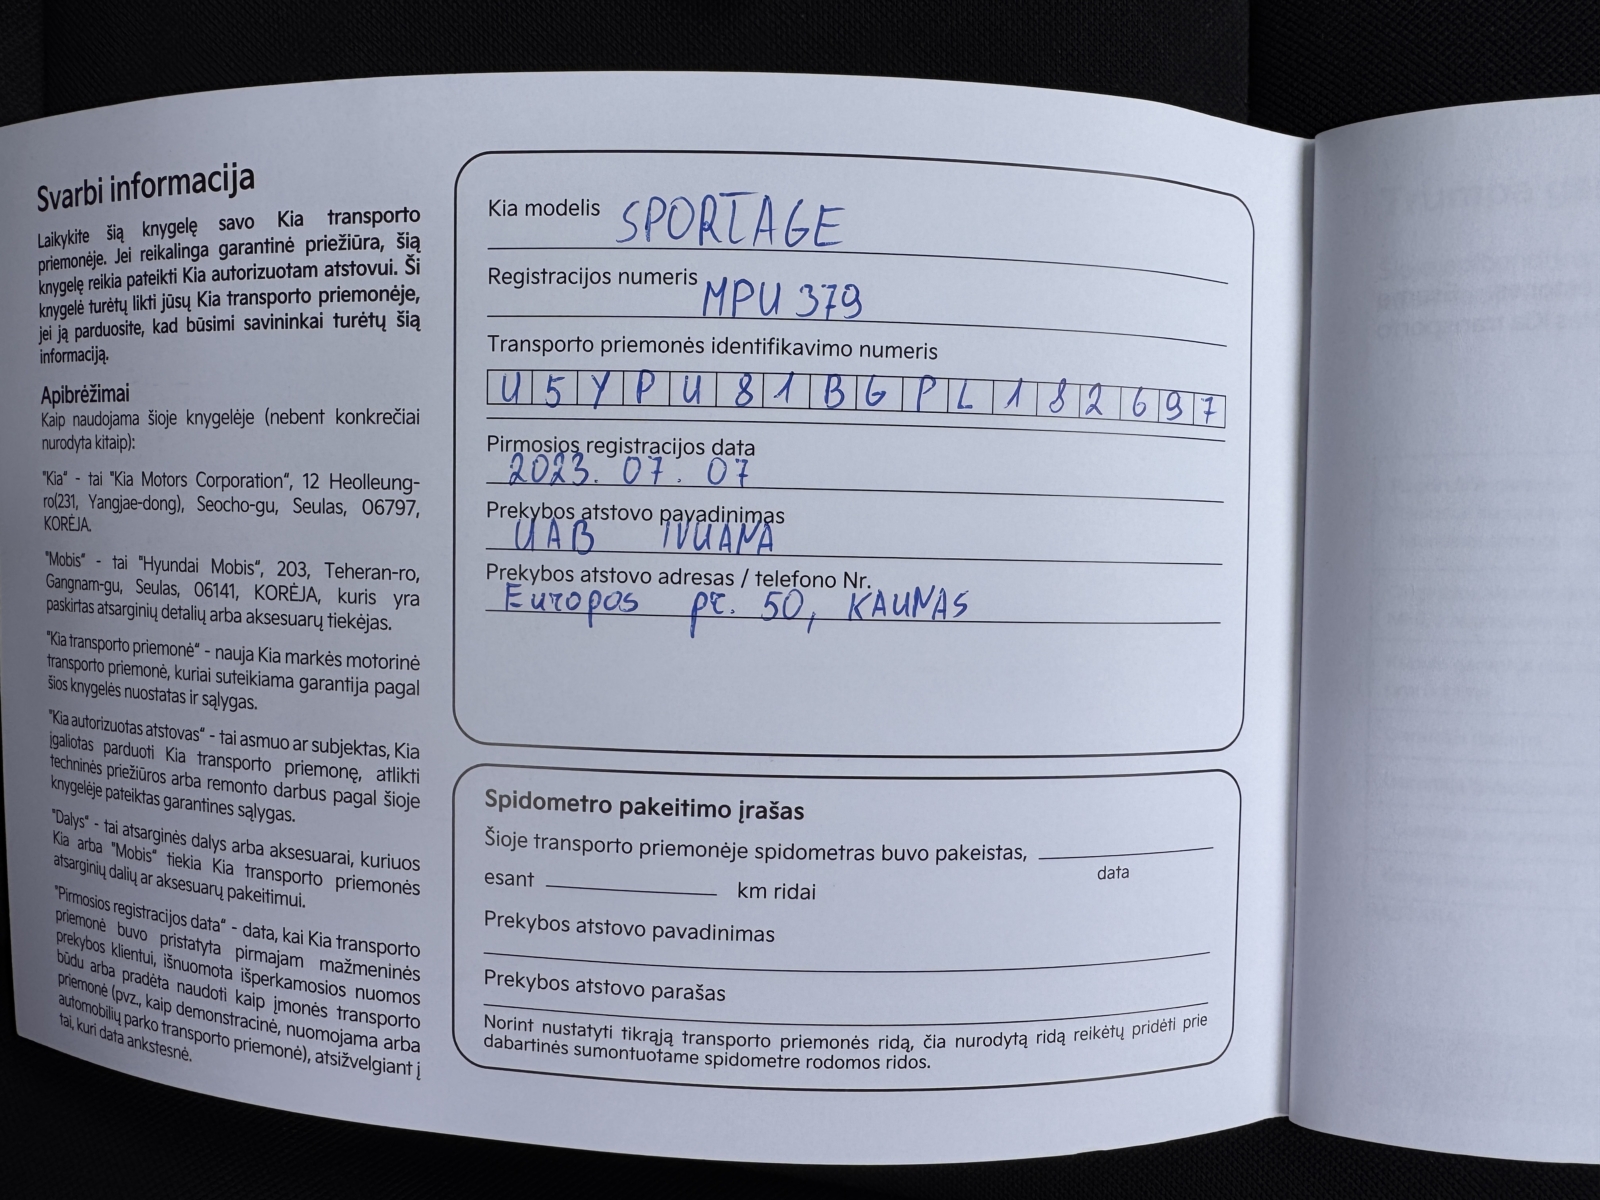 Svarbi informacija
Laikykite šią knygelę savo Kia transporto
priemonėje. Jei reikalinga garantinė priežiūra, šią
knygelę reikia pateikti Kia autorizuotam atstovui. Ši
knygelė turėtų likti jūsų Kia transporto priemonėje,
jei ją parduosite, kad būsimi savininkai turėtų šią
informaciją.
Apibrėžimai
Kaip naudojama šioje knygelėje (nebent konkrečiai
nurodyta kitaip):
"Kia“ - tai "Kia Motors Corporation“, 12 Heolleung-
ro(231, Yangjae-dong), Seocho-gu, Seulas, 06797,
KORĖJA.
"Mobis“ - tai "Hyundai Mobis“, 203, Teheran-ro,
Gangnam-gu, Seulas, 06141, KORĖJA, kuris yra
paskirtas atsarginių detalių arba aksesuarų tiekėjas.
"Kia transporto priemonė“ - nauja Kia markės motorinė
transporto priemonė, kuriai suteikiama garantija pagal
šios knygelės nuostatas ir sąlygas.
"Kia autorizuotas atstovas“ - tai asmuo ar subjektas, Kia
įgaliotas parduoti Kia transporto priemonę, atlikti
techninės priežiūros arba remonto darbus pagal šioje
knygelėje pateiktas garantines sąlygas.
"Dalys“ - tai atsarginės dalys arba aksesuarai, kuriuos
Kia arba "Mobis“ tiekia Kia transporto priemonės
atsarginių dalių ar aksesuarų pakeitimui.
"Pirmosios registracijos data“ - data, kai Kia transporto
priemonė buvo pristatyta pirmajam mažmeninės
prekybos klientui, išnuomota išperkamosios nuomos
būdu arba pradėta naudoti kaip įmonės transporto
priemonė (pvz., kaip demonstracinė, nuomojama arba
automobilių parko transporto priemonė), atsižvelgiant į
tai, kuri data ankstesnė.
Kia modelis SPORTAGE
Registracijos numeris MPU 379
Transporto priemonės identifikavimo numeris
U5YPU81BGPL182697
Pirmosios registracijos data
2023. 07. 07
Prekybos atstovo pavadinimas
UAB IVUANA
Prekybos atstovo adresas / telefono Nr.
Europos pr. 50, KAUNAS
Spidometro pakeitimo įrašas
Šioje transporto priemonėje spidometras buvo pakeistas,
data
esant km ridai
Prekybos atstovo pavadinimas
Prekybos atstovo parašas
Norint nustatyti tikrąją transporto priemonės ridą, čia nurodytą ridą reikėtų pridėti prie
dabartinės sumontuotame spidometre rodomos ridos.